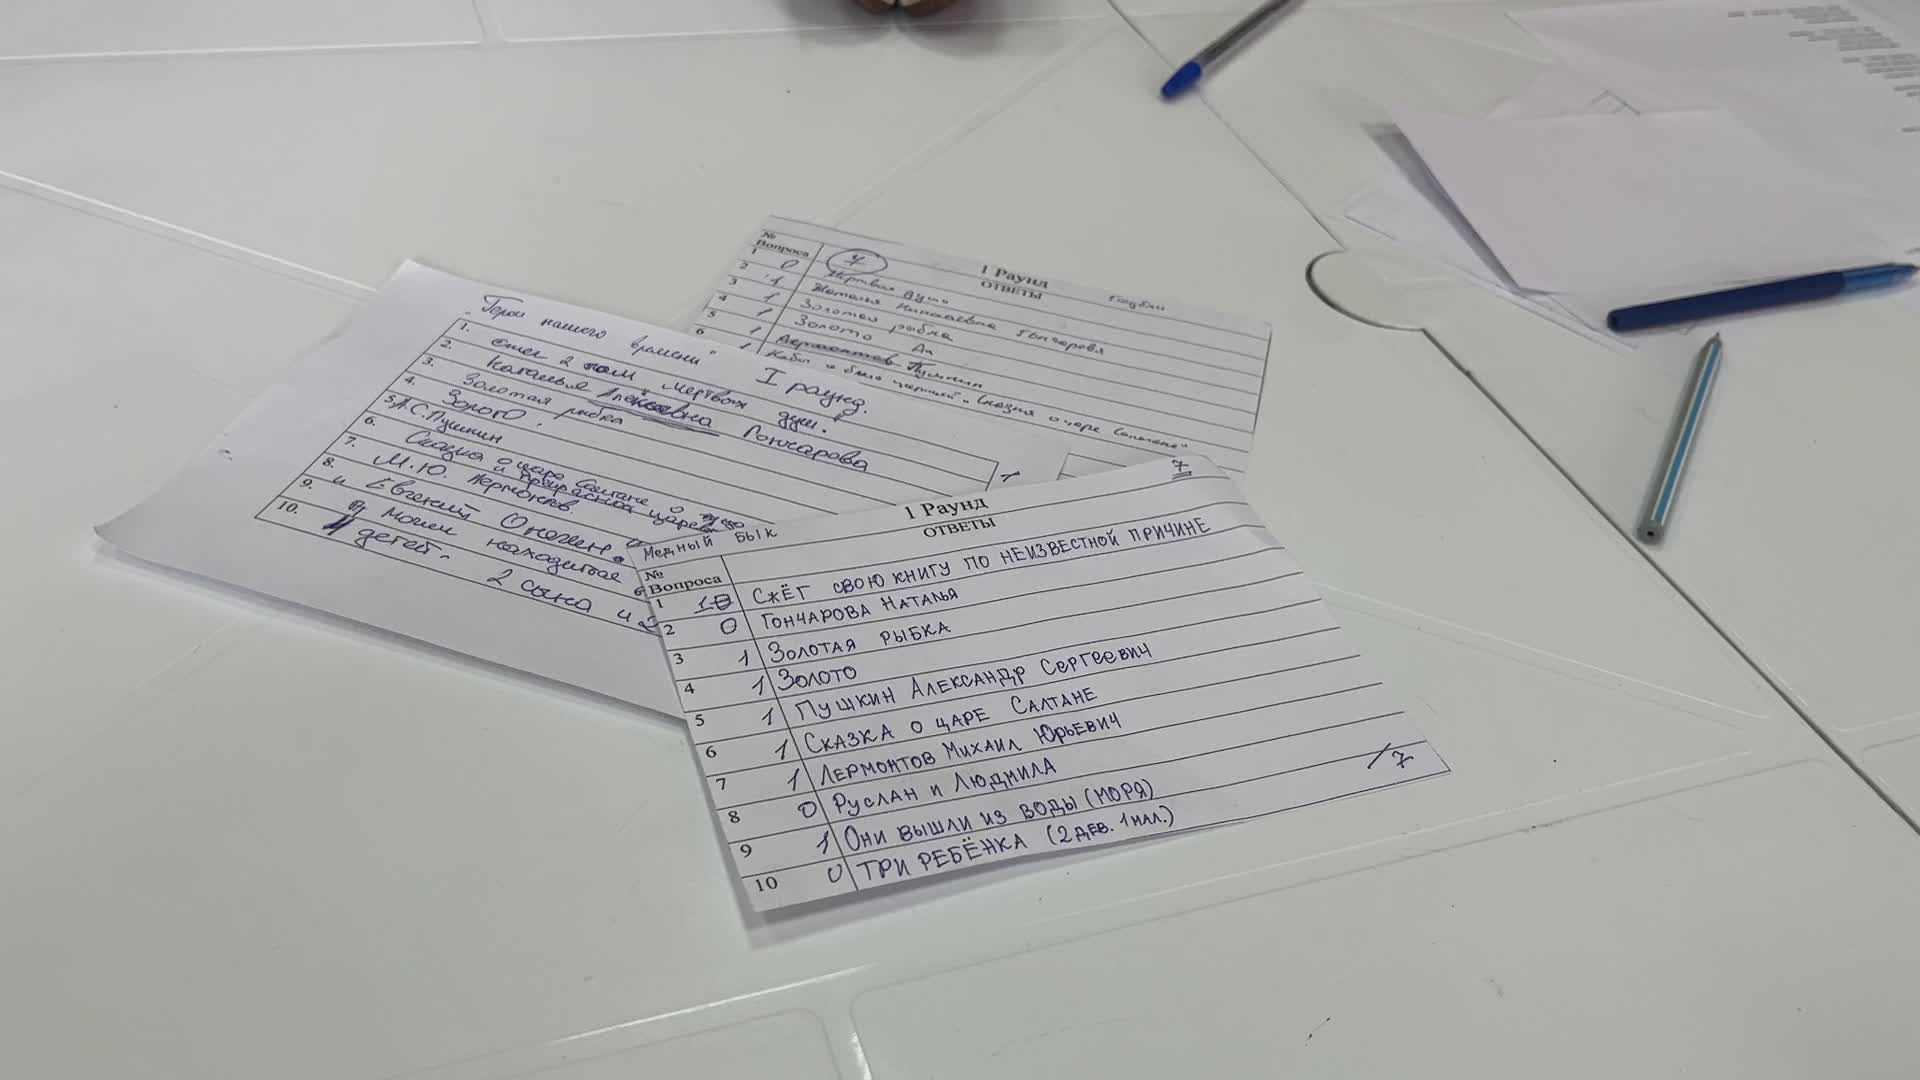 №
Вопроса
1 Раунд
ОТВЕТЫ
7
1 0
2 1 Наталья Николаевна Гончарова
3 1 Золотая рыбка
4 1 Золото
5 1 Пушкин
6 1 Сказка о царе Салтане"
"Герои нашего времени"
I раунд.
1. 2 том мертвых душ.
2. Наталья Гончарова
3. Золотая рыбка
4. Золото.
5. А.С. Пушкин
6. Сказка о царе Салтане о
и прекрасной царевне
7. М.Ю. Лермонтов
8. Евгений Онегин.
9. и может находиться
10. 4 детей. 2 сына и 2
Медный БЫК
1 Раунд
7
№
Вопроса
ОТВЕТЫ
1 1 СЖЁГ СВОЮ КНИГУ ПО НЕИЗВЕСТНОЙ ПРИЧИНЕ
2 0 ГОНЧАРОВА НАТАЛЬЯ
3 1 ЗОЛОТАЯ РЫБКА
4 1 ЗОЛОТО
5 1 ПУШКИН АЛЕКСАНДР СЕРГЕЕВИЧ
6 1 СКАЗКА О ЦАРЕ САЛТАНЕ
7 1 ЛЕРМОНТОВ МИХАИЛ ЮРЬЕВИЧ
8 0 РУСЛАН И ЛЮДМИЛА
9 1 ОНИ ВЫШЛИ ИЗ ВОДЫ (МОРЯ)
10 0 ТРИ РЕБЁНКА (2 ДЕВ. 1 МАЛ.)
/7